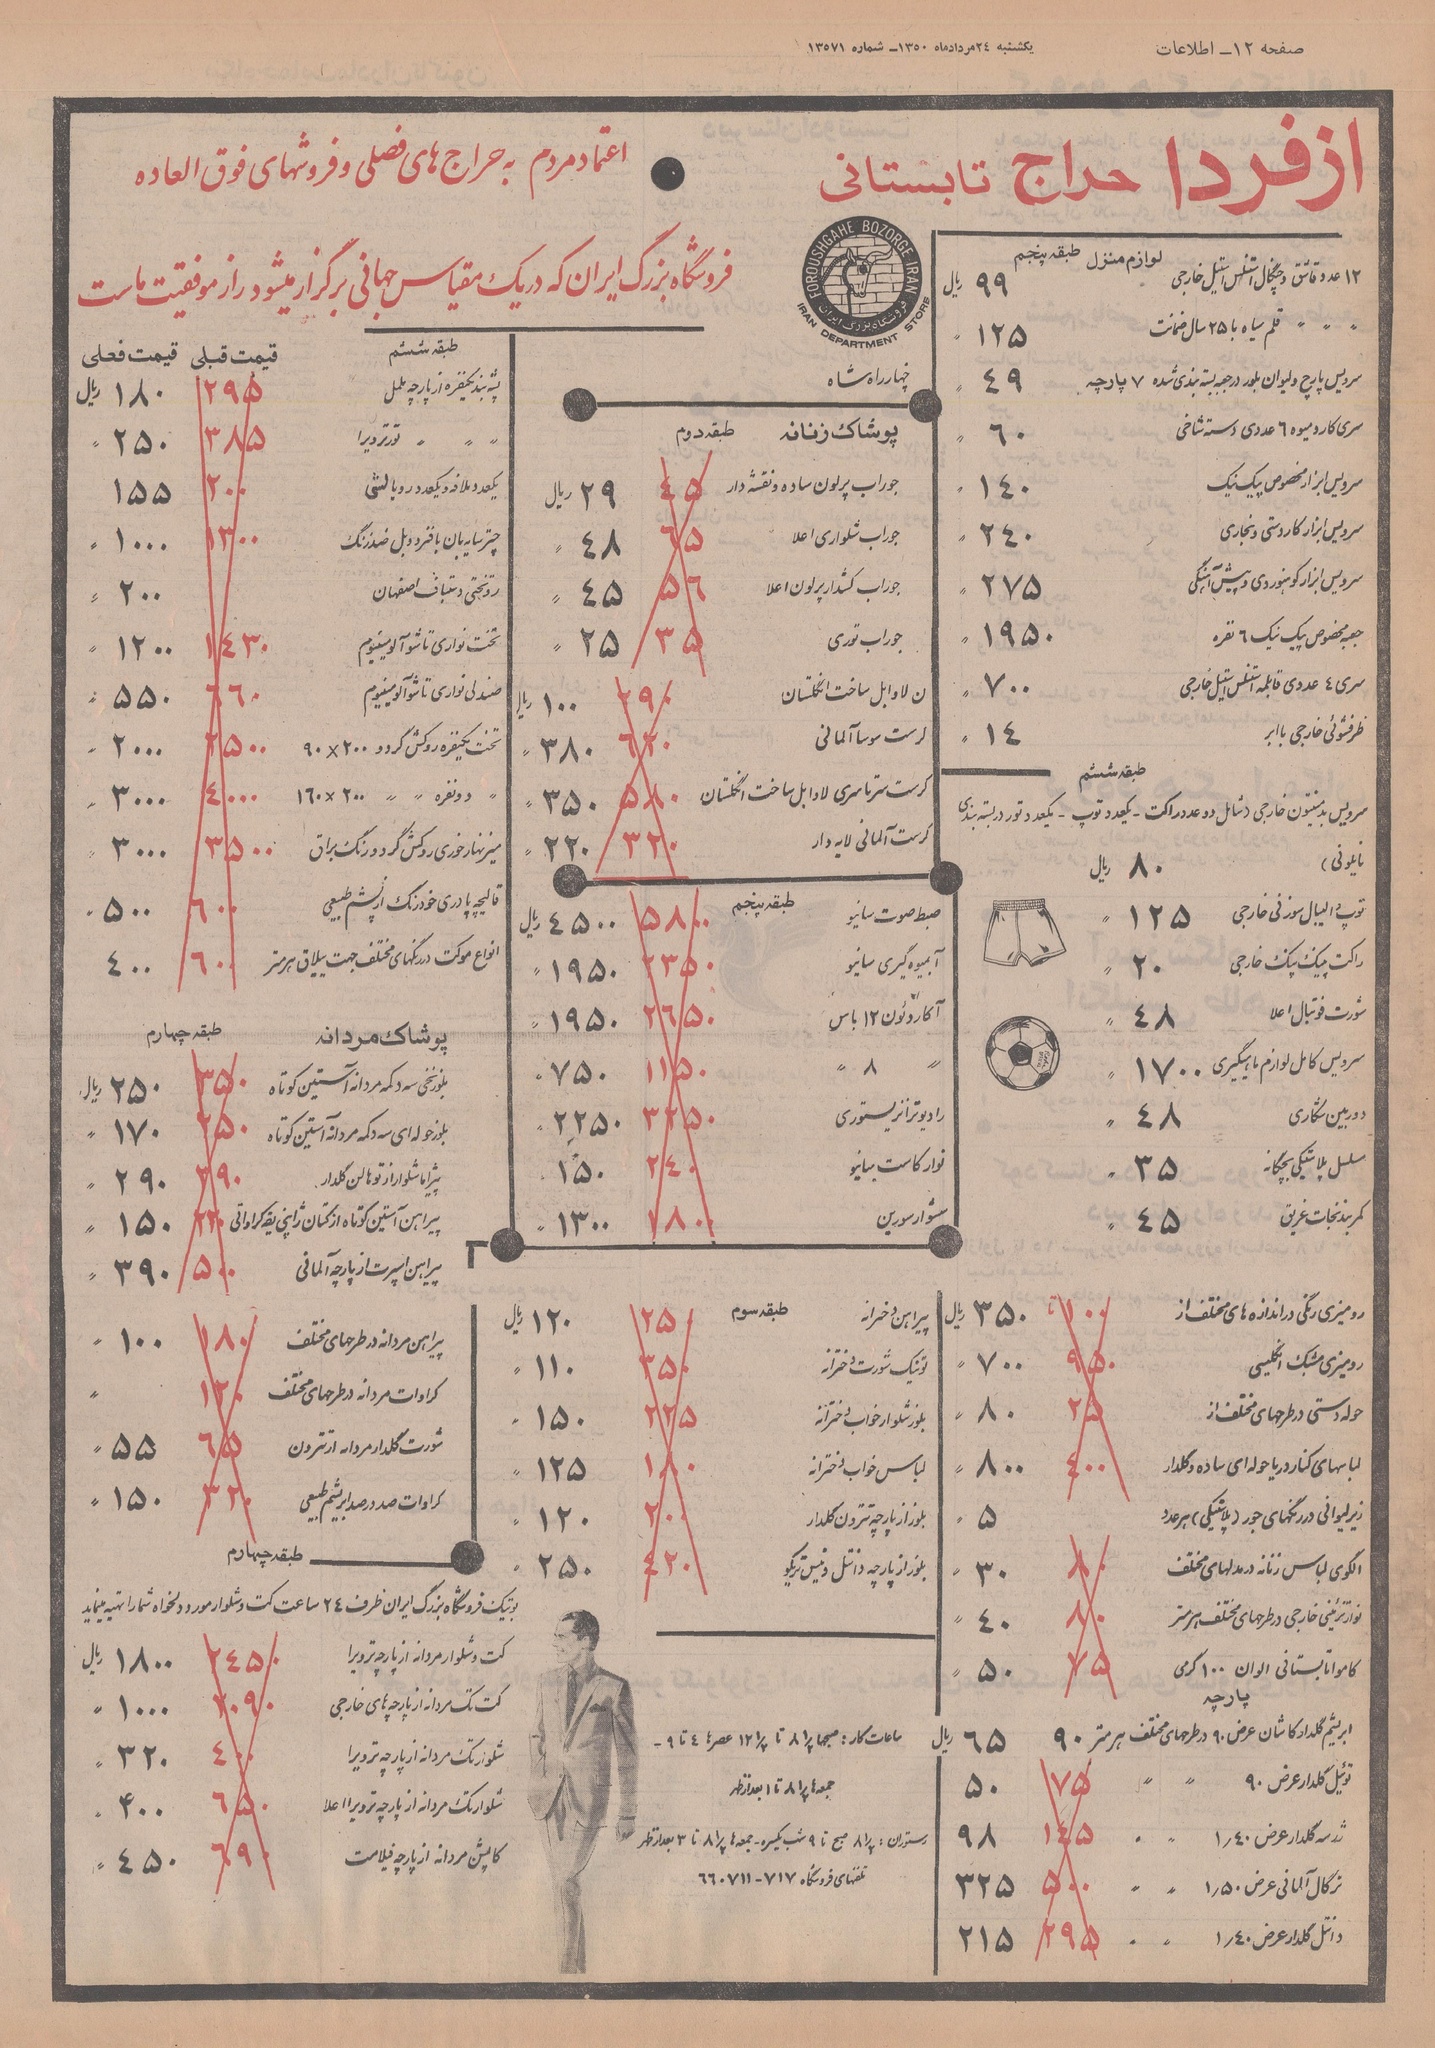 صفحه ۱۲ـ اطلاعات
یکشنبه ۲۴ مرداد ماه ۱۳۵۰ـ شماره ۱۳۵۷۱
از فردا حراج تابستانی
اعتماد مردم به حراج های فصلی و فروشهای فوق العاده
فروشگاه بزرگ ایران که در یک مقیاس جهانی برگزار میشود راز موفقیت ماست
FOROUSHGAHE BOZORGE IRAN
فروشگاه بزرگ ایران
IRAN DEPARTMENT STORE
چهارراه شاه
لوازم منزل طبقه پنجم
۱۲ عدد قاشق و چنگال استنلس استیل خارجی ۹۹ ریال
〃 〃 〃 قلم سیاه با ۲۵ سال ضمانت ۱۲۵ 〃
سرویس پارچ و لیوان بلور در جعبه بسته بندی شده ۷ پارچه ۴۹ 〃
سری کارد میوه ۶ عددی دسته شاخی ۶۰ 〃
سرویس ابزار مخصوص پیک نیک ۱۴۰ 〃
سرویس ابزار کاردستی و نجاری ۲۴۰ 〃
سرویس ابزار کوهنوردی و پیش آهنگی ۲۷۵ 〃
جعبه مخصوص پیک نیک ۶ نفره ۱۹۵۰ 〃
سری ۴ عددی قابلمه استنلس استیل خارجی ۷۰۰ 〃
ظرفشوئی خارجی با ابر ۱۴ 〃
طبقه ششم
سرویس بدمینتون خارجی (شامل دو عدد راکت - یکعدد توپ - یکعدد تور در بسته بندی
نایلونی) ۸۰ ریال
توپ والیبال سوزنی خارجی ۱۲۵ 〃
راکت پینگ پنگ خارجی ۲۰ 〃
شورت فوتبال اعلا ۴۸ 〃
سرویس کامل لوازم ماهیگیری ۱۷۰۰ 〃
دوربین شکاری ۴۸ 〃
مسلسل پلاستیکی بچگانه ۳۵ 〃
کمربند نجات غریق ۴۵ 〃
رومیزی رنگی در اندازه های مختلف از ۱۰۰ تا ۳۵۰ ریال
رومیزی مشبک انگلیسی ۹۵۰ ۷۰۰ 〃
حوله دستی در طرحهای مختلف از ۲۵ ۸۰ 〃
لباسهای کنار دریا حوله ای ساده و گلدار ۴۰۰ ۸۰۰ 〃
زیرلیوانی در رنگهای جور (پلاستیکی) هر عدد ۵ 〃
الگوی لباس زنانه در مدلهای مختلف ۸۰ ۳۰ 〃
نوار تزئینی خارجی در طرحهای مختلف هر متر ۸۰ ۴۰ 〃
کاموا تابستانی الوان ۱۰۰ گرمی ۷۵ ۵۰ 〃
پارچه
ابریشم گلدار کاشان عرض ۹۰ در طرحهای مختلف هر متر ۹۰ ۶۵ ریال
توئیل گلدار عرض ۹۰ 〃 〃 ۷۵ ۵۰
ژرسه گلدار عرض ۱/۴۰ 〃 〃 ۱۴۵ ۹۸
ترگال آلمانی عرض ۱/۵۰ 〃 〃 ۵۰۰ ۳۲۵
دانتل گلدار عرض ۱/۴۰ 〃 〃 ۲۹۵ ۲۱۵
پوشاک زنانه طبقه دوم
جوراب پرلون ساده و نقشه دار ۴۵ ۲۹ ریال
جوراب شلواری اعلا ۶۵ ۴۸ 〃
جوراب کشدار پرلون اعلا ۵۶ ۴۵ 〃
جوراب توری ۳۵ ۲۵ 〃
لاوابل ساخت انگلستان ۲۹۰ ۱۰۰ ریال
کرست موسا آلمانی ۶۲۰ ۳۸۰ 〃
کرست سرتاسری لاوابل ساخت انگلستان ۵۸۰ ۳۵۰ 〃
کرست آلمانی لایه دار ۳۲۰ ۲۲۰ 〃
طبقه پنجم
ضبط صوت سانیو ۵۸۰۰ ۴۵۰۰ ریال
آبمیوه گیری سانیو ۲۳۵۰ ۱۹۵۰ 〃
آکاردئون ۱۲ باس ۲۶۵۰ ۱۹۵۰ 〃
〃 ۸ 〃 ۱۱۵۰ ۷۵۰ 〃
رادیو ترانزیستوری ۳۲۵۰ ۲۲۵۰ 〃
نوار کاست سانیو ۲۴۰ ۱۵۰ 〃
سشوار سورین ۱۸۰۰ ۱۳۰۰ 〃
طبقه سوم
پیراهن دخترانه ۲۵۰ ۱۲۰ ریال
تونیک شورت دخترانه ۳۵۰ ۱۱۰ 〃
بلوز شلوار خواب دخترانه ۲۲۵ ۱۵۰ 〃
لباس خواب دخترانه ۱۸۰ ۱۲۵ 〃
بلوز از پارچه تترون گلدار ۲۰۰ ۱۲۰ 〃
بلوز از پارچه دانتل و نیس تریکو ۴۲۰ ۲۵۰ 〃
ساعات کار: صبحها ۸ تا ۱۲ عصرها ۴ تا ۹ ـ
جمعه ها ۸ تا ۱ بعدازظهر
رستوران: ۸ صبح تا ۹ شب یکسره - جمعه ها ۸ تا ۳ بعدازظهر
تلفنهای فروشگاه ۷۱۷-۶۶۰۷۱۱
طبقه ششم قیمت قبلی قیمت فعلی
پشه بند یکنفره از پارچه ململ ۲۹۵ ۱۸۰ ریال
〃 〃 〃 تور ترویرا ۳۸۵ ۲۵۰ 〃
یکعدد ملافه و یکعدد روبالشی ۲۰۰ ۱۵۵
چتر سایه بان با فنر دوبل ضدزنگ ۱۳۰۰ ۱۰۰۰ 〃
روتختی دستباف اصفهان ۲۰۰ 〃
تخت نواری تاشو آلومینیوم ۱۴۳۰ ۱۲۰۰ 〃
صندلی نواری تاشو آلومینیوم ۶۶۰ ۵۵۰ 〃
تخت یکنفره روکش گردو ۲۰۰×۹۰ ۲۵۰۰ ۲۰۰۰ 〃
〃 دونفره 〃 〃 ۲۰۰×۱۶۰ ۴۰۰۰ ۳۰۰۰ 〃
میز نهارخوری روکش گردو رنگ براق ۳۵۰۰ ۳۰۰۰ 〃
قالیچه پادری خودرنگ از پشم طبیعی ۶۰۰ ۵۰۰ 〃
انواع موکت در رنگهای مختلف جهت ییلاق هر متر ۶۰۰ ۴۰۰
پوشاک مردانه طبقه چهارم
بلوز نخی سه دکمه مردانه آستین کوتاه ۳۵۰ ۲۵۰ ریال
بلوز حوله ای سه دکمه مردانه آستین کوتاه ۲۵۰ ۱۷۰ 〃
پیژاما شلوار از توهالن گلدار ۳۹۰ ۲۹۰ 〃
پیراهن آستین کوتاه از کتان ژاپنی یقه کراواتی ۲۲۰ ۱۵۰ 〃
پیراهن اسپرت از پارچه آلمانی ۵۰۰ ۳۹۰ 〃
پیراهن مردانه در طرحهای مختلف ۱۸۰ ۱۰۰ 〃
کراوات مردانه در طرحهای مختلف ۱۲۰ 〃
شورت گلدار مردانه از تترون ۶۵ ۵۵ 〃
کراوات صد در صد ابریشم طبیعی ۳۲۰ ۱۵۰ 〃
طبقه چهارم
بوتیک فروشگاه بزرگ ایران ظرف ۲۴ ساعت کت و شلوار مورد دلخواه شما را تهیه مینماید
کت و شلوار مردانه از پارچه ترویرا ۲۴۵۰ ۱۸۰۰ ریال
کت تک مردانه از پارچه های خارجی ۲۰۹۰ ۱۰۰۰ 〃
شلوار تک مردانه از پارچه ترویرا ۴۰۰ ۳۲۰ 〃
شلوار تک مردانه از پارچه ترویرا اعلا ۶۵۰ ۴۰۰ 〃
کاپشن مردانه از پارچه فیلامت ۶۹۰ ۴۵۰ 〃